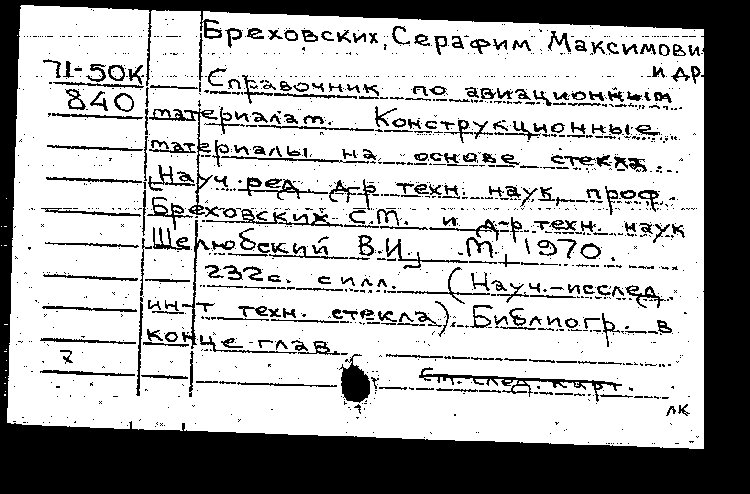 Бреховских, Серафим Максимови
и др
71-50к
840
Справочник по авиационным
материалам. Конструкционные
материалы на основе стекла.
[Науч. ред д-р техн. наук, проф.
Бреховских С.М. и д-р техн. наук
Шелюбский В.И.] М, 1970.
232с. с илл. (Науч.-исслед
ин-т техн. стекла). Библиогр. в
конце глав.
См. след. карт.
лк